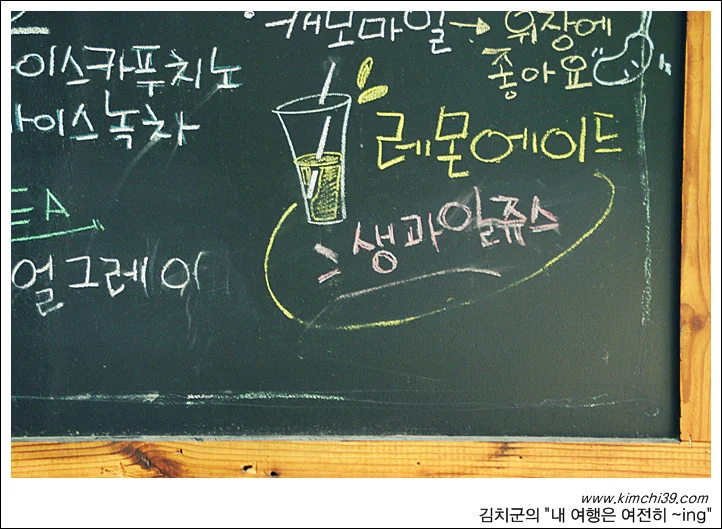 캐모마일→위장에
좋아요
아이스카푸치노
아이스녹차
레몬에이드
생과일쥬스
EA
얼그레이
www.kimchi39.com
김치군의 "내 여행은 여전히 ~ing"